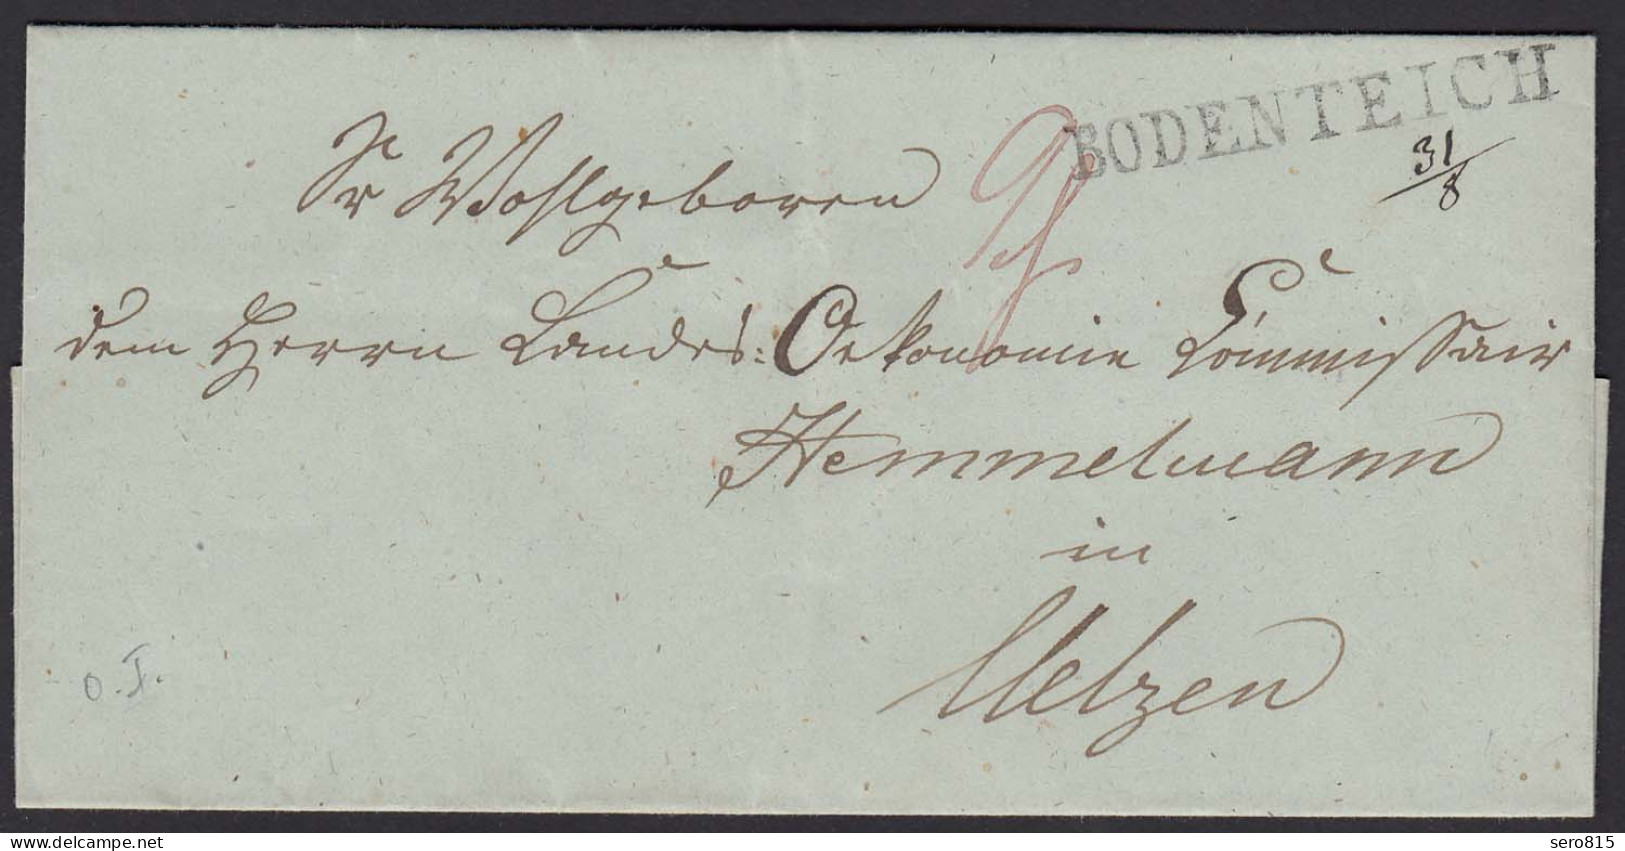 BODENTEICH
31/8
Sr Wohlgeboren
dem Herrn Landes: Oekonomie Commissair
Hemmelmann
in
Uelzen
O. I.
www.delcampe.net
sero815